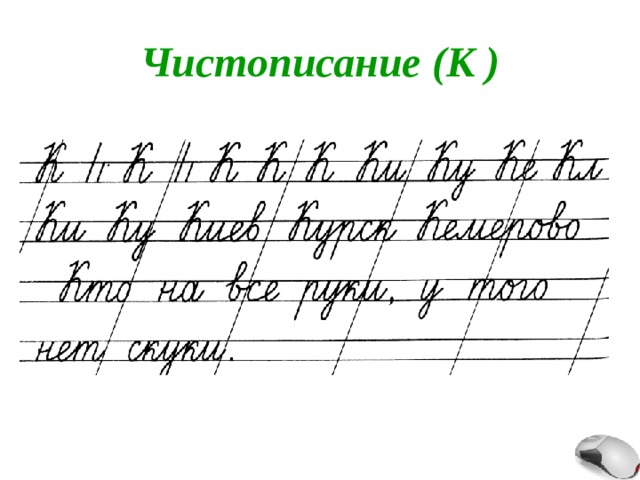 Чистописание (К )
К К К К К Ки Ку Ке Кл
Ки Ку Киев Курск Кемерово
Кто на все руки, у того
нет скуки.